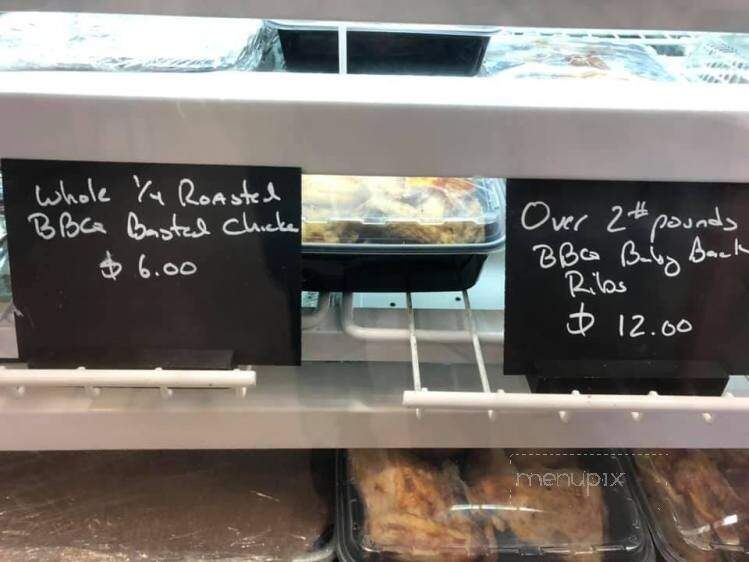 Whole 1/4 Roasted
BBQ Basted Chicke
$ 6.00
Over 2# pounds
BBQ Baby Back
Ribs
$ 12.00
menupix